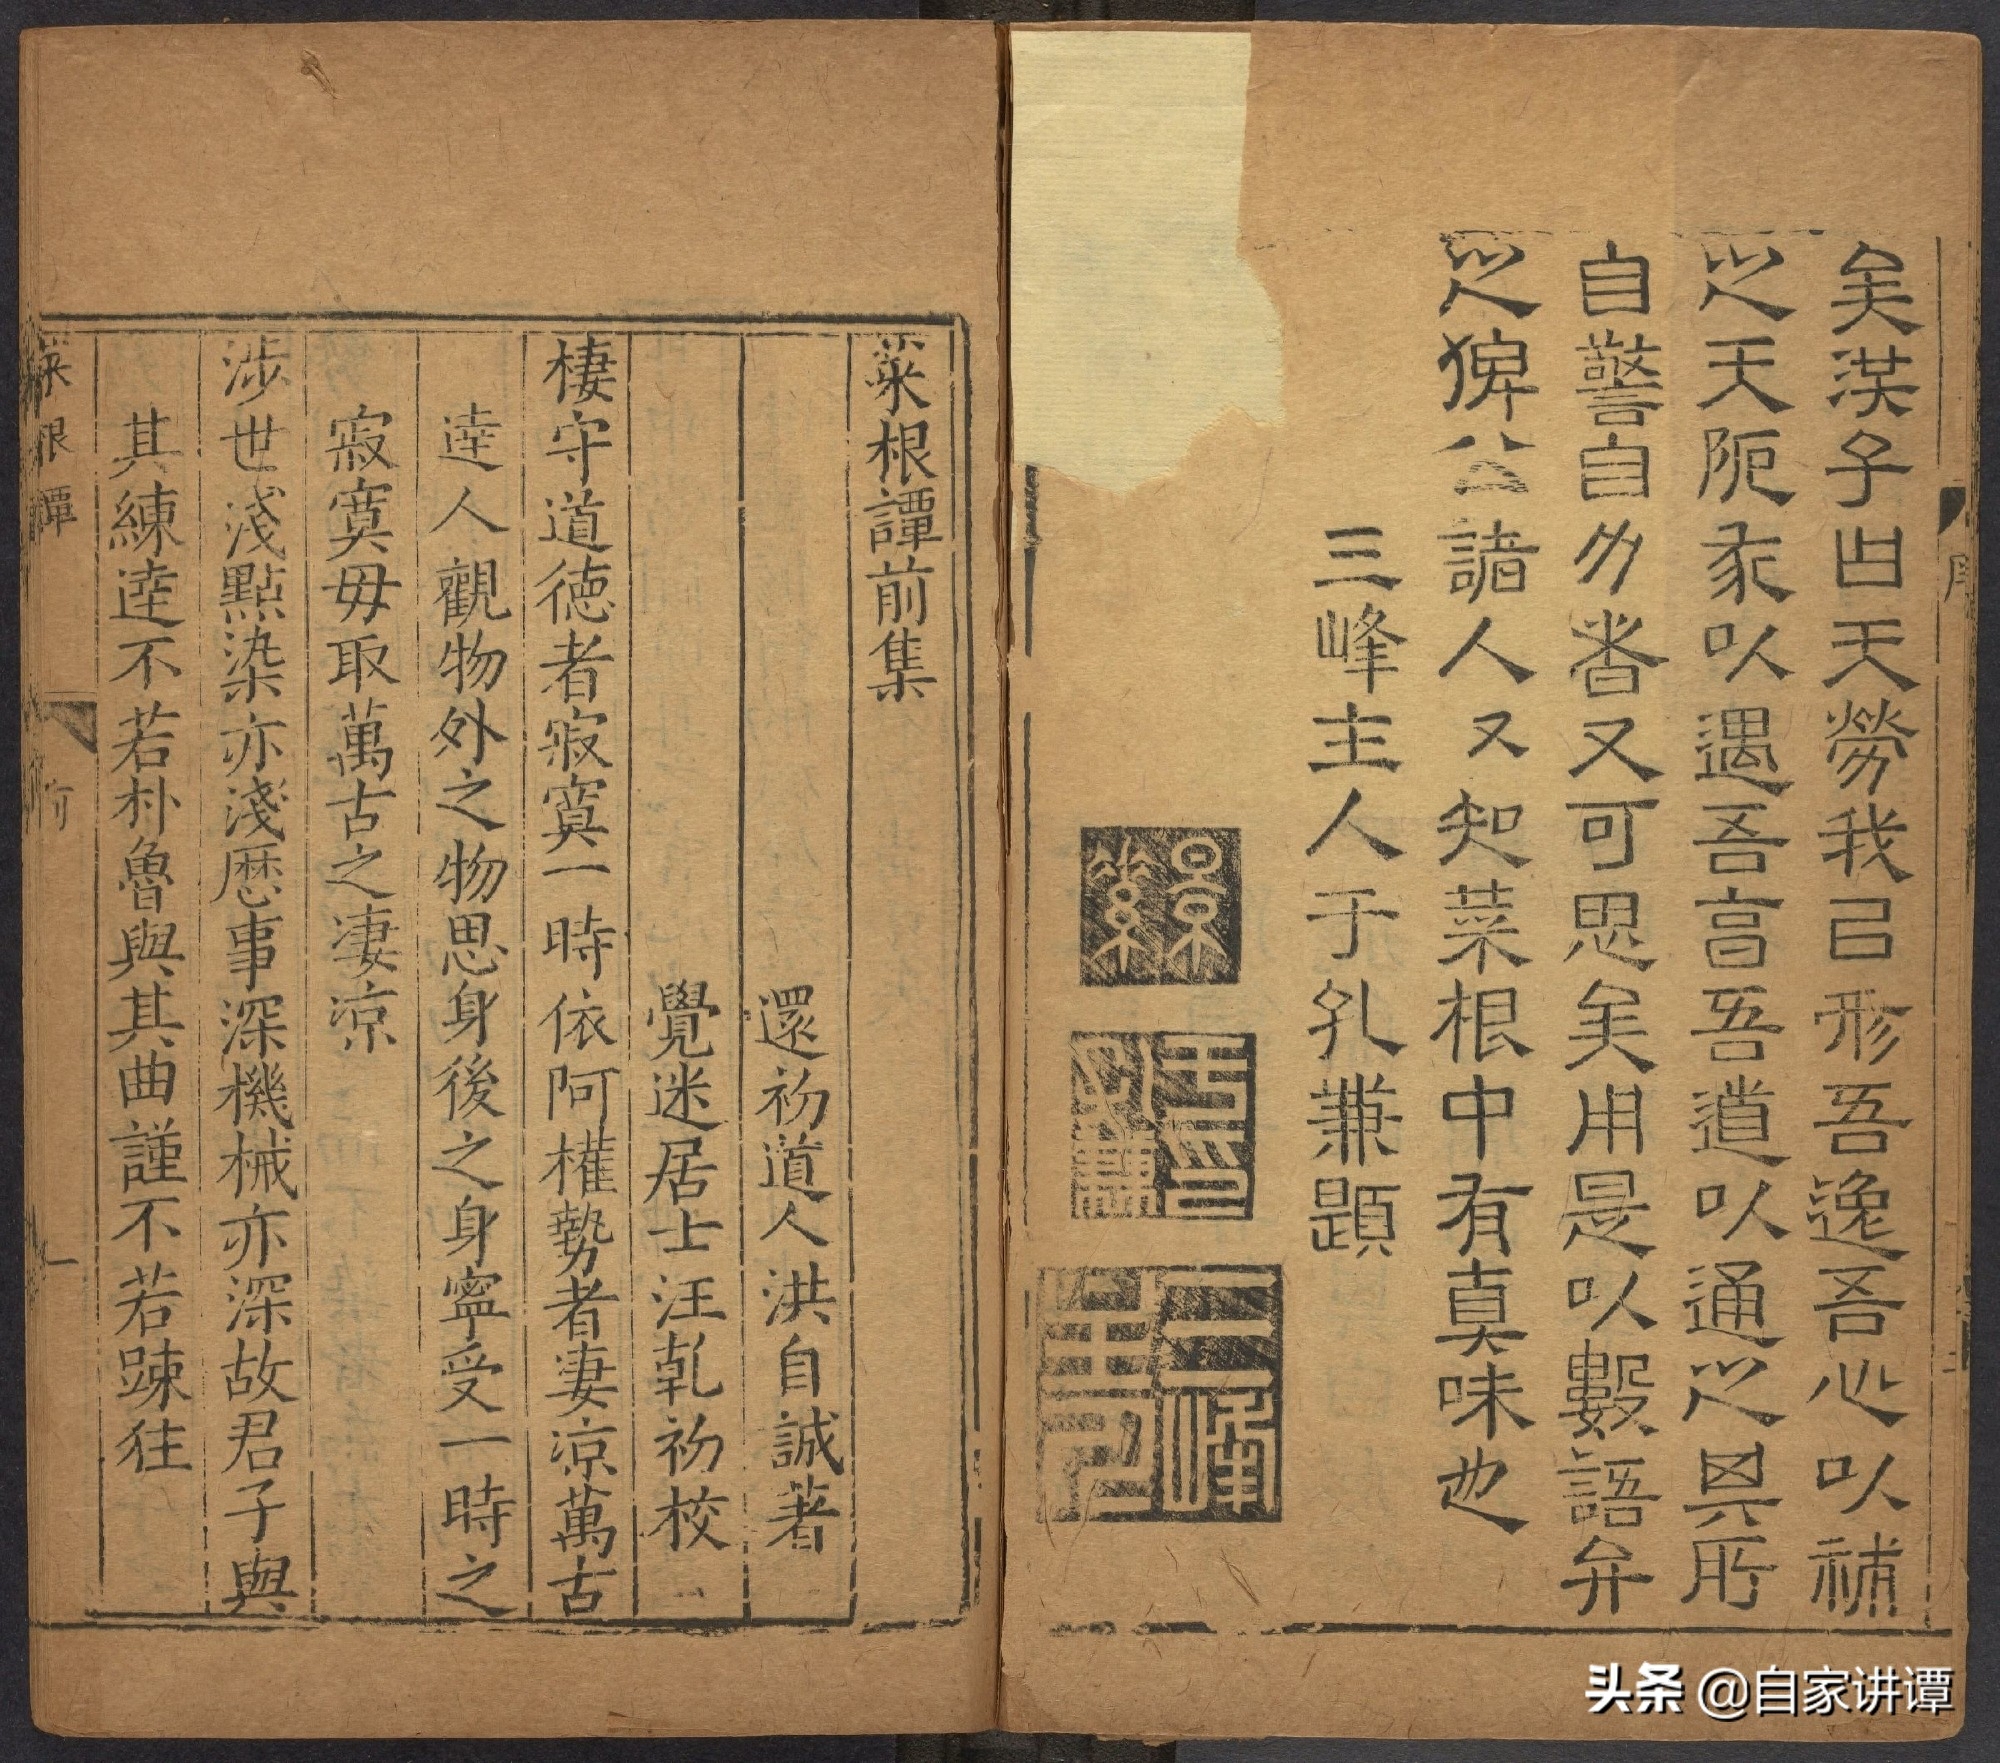 矣洪子曰天勞我以形吾逸吾心以補
之天阨我以遇吾高吾道以通之其所
自警自力者又可思矣由是以數語弁
之俾公諸人人知菜根中有真味也
三峰主人于孔兼題
菜根譚前集
還初道人洪自誠著
覺迷居士汪乾初校
棲守道德者寂寞一時依阿權勢者淒涼萬古
達人觀物外之物思身後之身寧受一時之
寂寞毋取萬古之淒涼
涉世淺點染亦淺歷事深機械亦深故君子與
其練達不若朴魯與其曲謹不若踈狂
菜根譚
前
一
头条 @自家讲谭